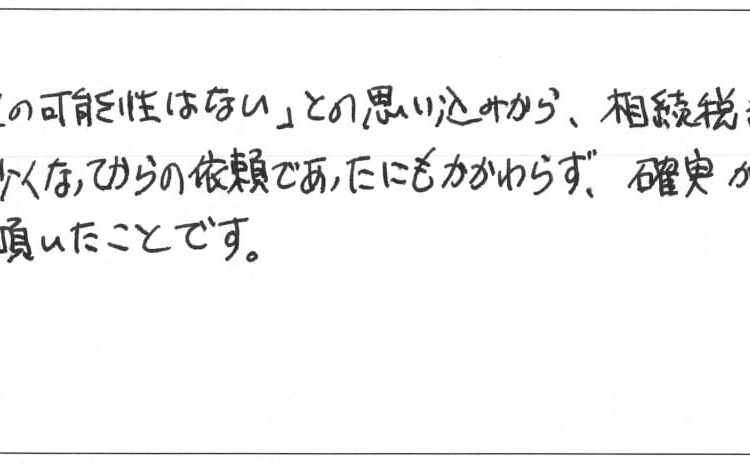 の可能性はない」との思い込みから、相続税
少くなってからの依頼であったにもかかわらず、確実か
頂いたことです。